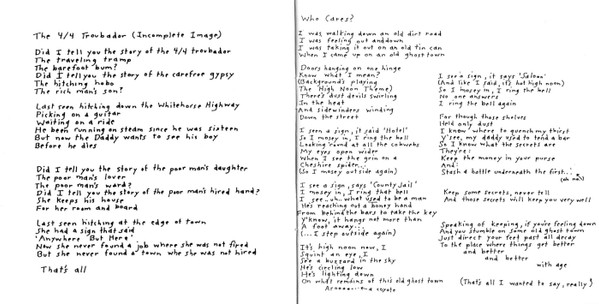 The 4/4 Troubador (Incomplete Image)
Did I tell you the story of the 4/4 troubador
The traveling tramp
The barefoot bum?
Did I tell you the story of the carefree gypsy
The hitching hobo
The rich man's son?
Last seen hitching down the Whitehorse Highway
Picking on a guitar
Waiting on a ride
He been running on steam since he was sixteen
But now the Daddy wants to see his boy
Before he dies
Did I tell you the story of the poor man's daughter
The poor man's lover
The poor man's ward?
Did I tell you the story of the poor man's hired hand?
She keeps his house
For her room and board
Last seen hitching at the edge of town
She had a sign that said
'Anywhere But Here'
Now she never found a job where she was not fired
But she never found a town who she was not hired
That's all
Who Cares?
I was walking down an old dirt road
I was feeling out and down
I was taking it out on an old tin can
When I came up on an old ghost town
Doors hanging on one hinge
Know what I mean?
(Background's playing
The High Noon Theme)
There's dust devils swirling
In the heat
And sidewinders winding
Down the street
I seen a sign, it said 'Hotel'
So I mosey in, I ring the bell
Looking 'round at all the cobwebs
My eyes open wider
When I see the grin on a
Cheshire spider...
(So I mosey out side again)
I see a sign, says 'County Jail'
I mosey in, I ring that bell
I see...uh...what used to be a man
He's reaching out a boney hand
From behind the bars to take the key
Y'know, it hangs not more than
A foot away...
(...I step outside again)
It's high noon now, I
Squint an eye, I
See a buzzard in the sky
He's circling low
He's lighting down
On what's remains of this old ghost town
a coyote
I see a sign, it says 'Saloon'
(And like I said, it's hot high noon)
So I mosey in, I ring the bell
No one answers
I ring the bell again
For though those shelves
Held only dust
I know where to quench my thirst
Y'see, my daddy used to tend a bar
So I know what the secrets are
They're:
Keep the money in your purse
And:
Stash a bottle underneath the first...
(oh no)
Keep some secrets, never tell
And those secrets will keep you very well
Speaking of keeping, if you're feeling down
And you stumble on some old ghost town
Just direct your feet past all decay
To the place where things get better
and better
and better
with age
(That's all I wanted to say, really)